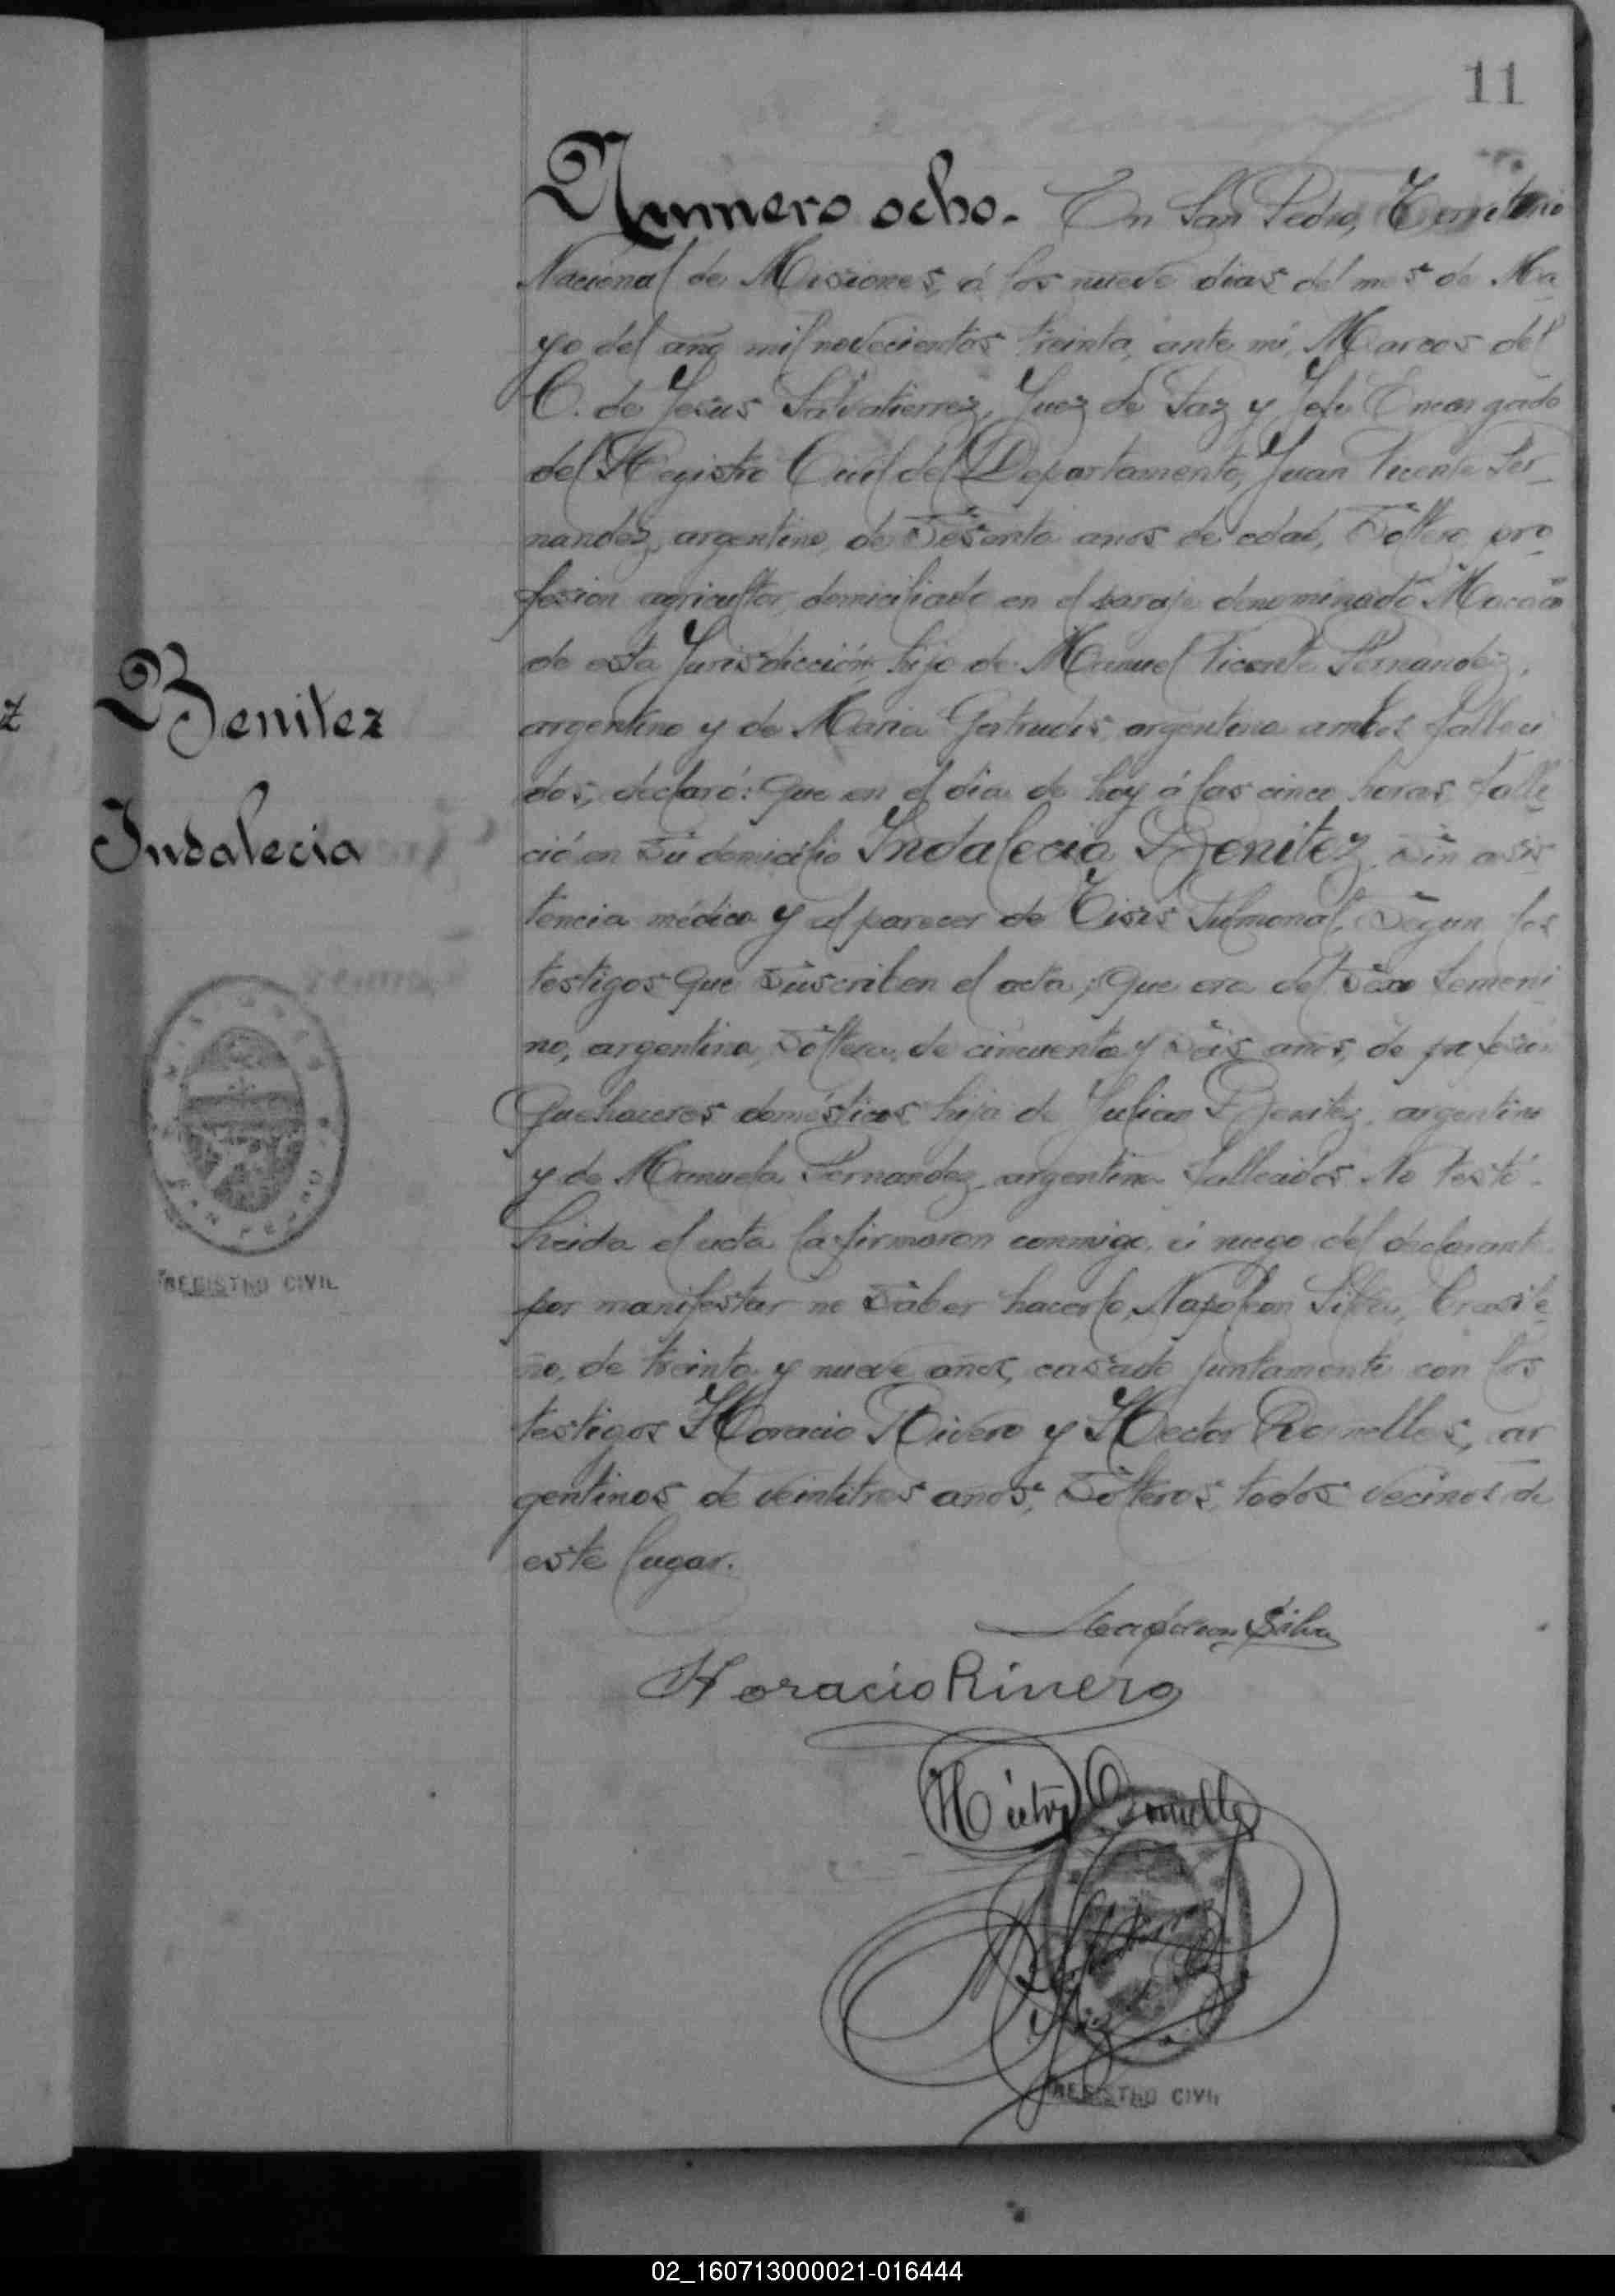 11
Número ocho. En San Pedro, Territorio
Nacional de Misiones, á los nueve dias del mes de Ma-
yo del año mil novecientos treinta, ante mi, Marcos del
C. de Jesus Salvatierrez, Juez de Paz y Jefe Encargado
del Registro Civil del Departamento, Juan Vicente Fer-
nandez, argentino, de sesenta anos de edad, soltero, pro-
fesion agricultor, domiciliado en el paraje denominado
de esta Jurisdicción, hijo de Manuel Vicente Fernandez,
argentino y de Maria Gertrudis, argentina ambos falleci
dos, declaró: Que en el dia de hoy á las cinco horas, falle-
ció en su domicilio Indalecia Benitez, sin asis-
tencia médica y al parecer de Tisis Pulmonal, segun los
testigos que suscriben el acta; que era del sexo femeni
no, argentina, soltera, de cincuenta y seis años, de profesión
Quehaceres domésticos hija de Julian Benitez, argentino
y de Manuela Fernandez, argentina fallecidos. No testó.-
Leida el acta la firmaron conmigo, á ruego del declarante
por manifestar no saber hacerlo, Napoleon Silva, brasile-
ño, de treinta y nueve años, casado juntamente con los
testigos Horacio Rivero y Hector Romelles, ar-
gentinos de veintitres años, solteros, todos vecinos de
este lugar.
Benitez
Indalecia
MISIONES
SAN PEDRO
REGISTRO CIVIL
Napoleon Silva
Horacio Rivero
Héctor
REGISTRO CIVIL
02_160713000021-016444